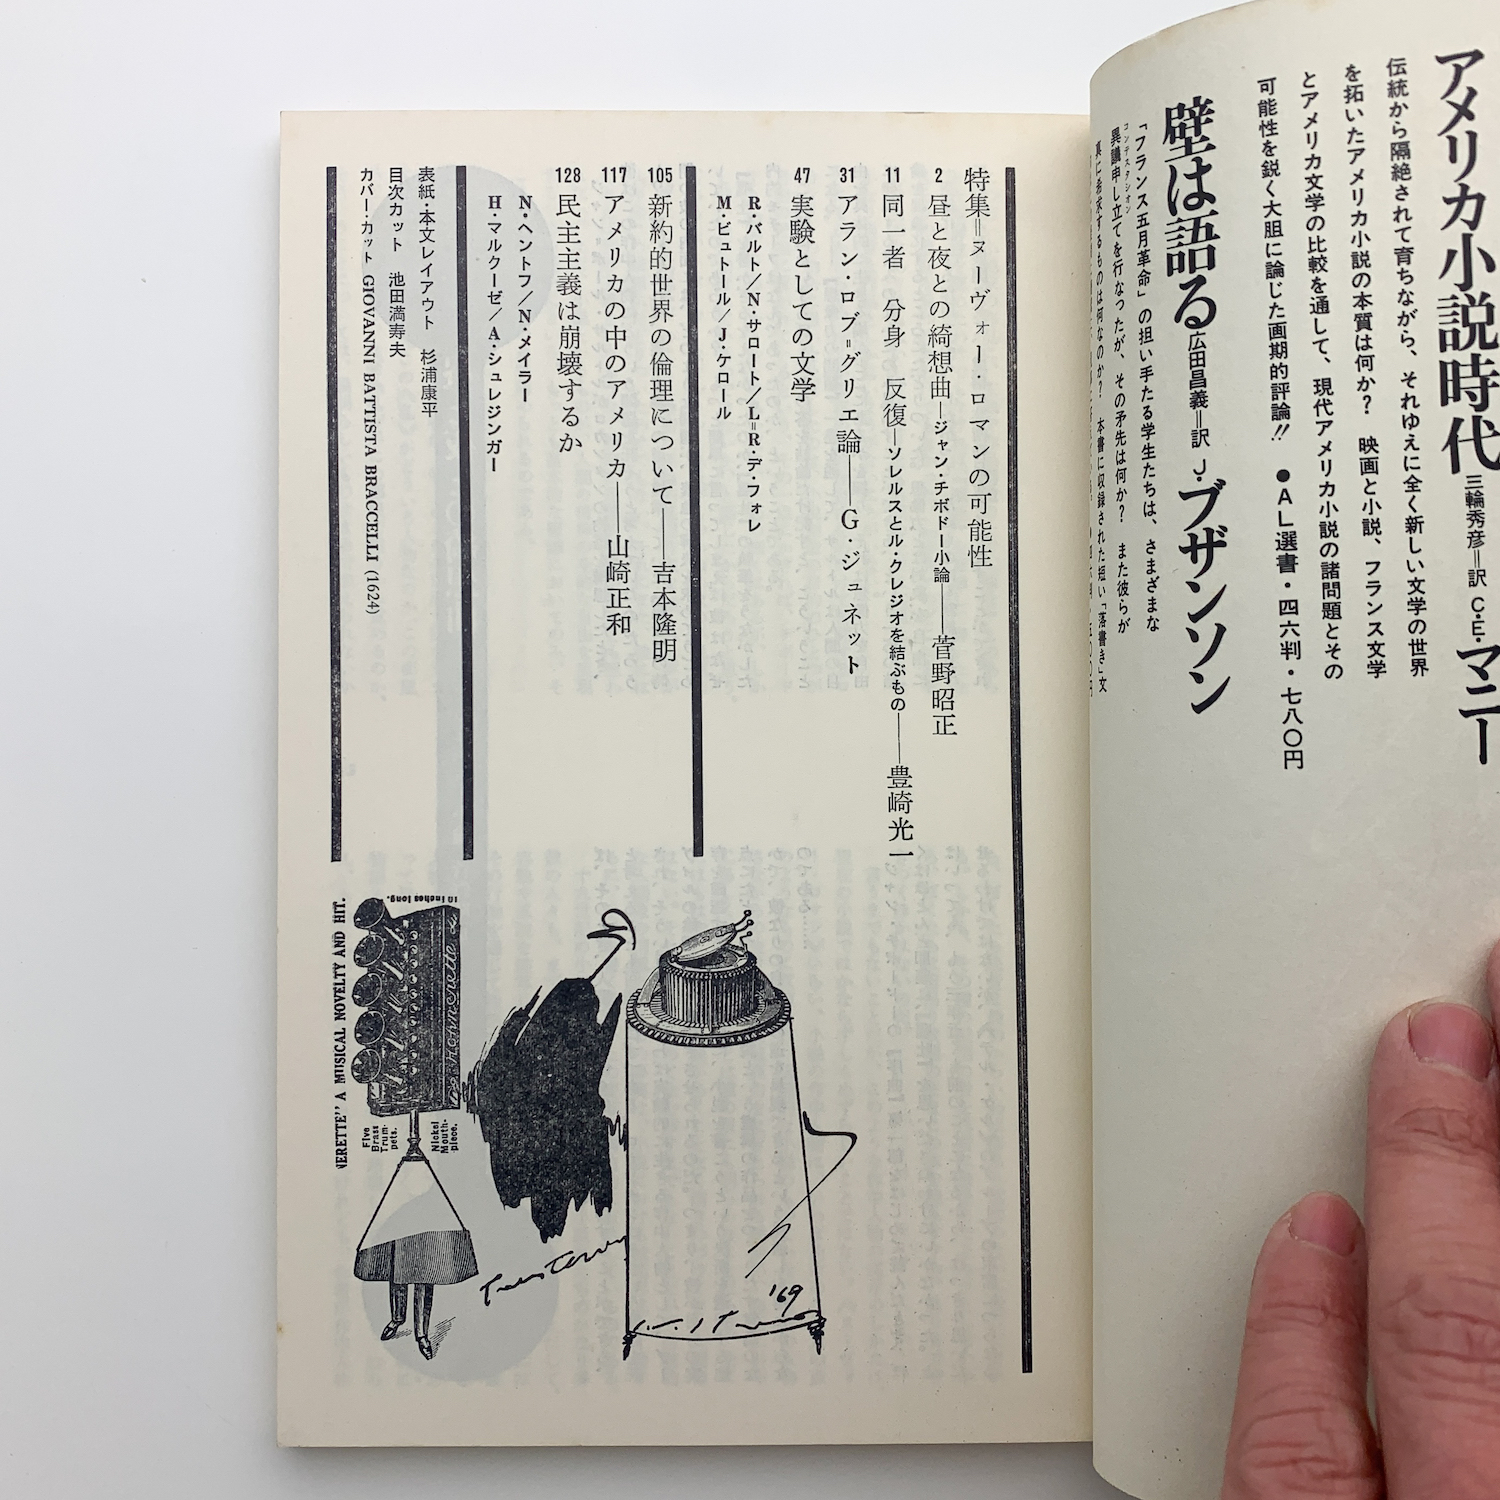 アメリカ小説時代 三輪秀彦＝訳 C・E・マニー
伝統から隔絶されて育ちながら、それゆえに全く新しい文学の世界
を拓いたアメリカ小説の本質は何か？　映画と小説、フランス文学
とアメリカ文学の比較を通して、現代アメリカ小説の諸問題とその
可能性を鋭く大胆に論じた画期的評論!!　●AL選書・四六判・七八〇円
壁は語る 広田昌義＝訳 J・ブザンソン
「フランス五月革命」の担い手たる学生たちは、さまざまな
異議申し立てを行なったが、その矛先は何か？　また彼らが
コンテスタシオン
真に希求するものは何なのか？　本書に収録された短い「落書き」文
特集＝ヌーヴォー・ロマンの可能性
2 昼と夜との綺想曲—ジャン・チボドー小論——菅野昭正
11 同一者　分身　反復—ソレルスとル・クレジオを結ぶもの——豊崎光一
31 アラン・ロブ＝グリエ論——G・ジュネット
47 実験としての文学
R・バルト／N・サロート／L＝R・デ・フォレ
M・ビュトール／J・ケロール
105 新約的世界の倫理について——吉本隆明
117 アメリカの中のアメリカ——山崎正和
128 民主主義は崩壊するか
N・ヘントフ／N・メイラー
H・マルクーゼ／A・シュレジンガー
表紙・本文レイアウト　杉浦康平
目次カット　池田満寿夫
カバー・カット　GIOVANNI BATTISTA BRACCELLI (1624)
NERETTE" A MUSICAL NOVELTY AND HIT.
10 inches long.
Hornerette
Five
Brass
Trum-
pets.
Nickel
Mouth-
piece.
'69